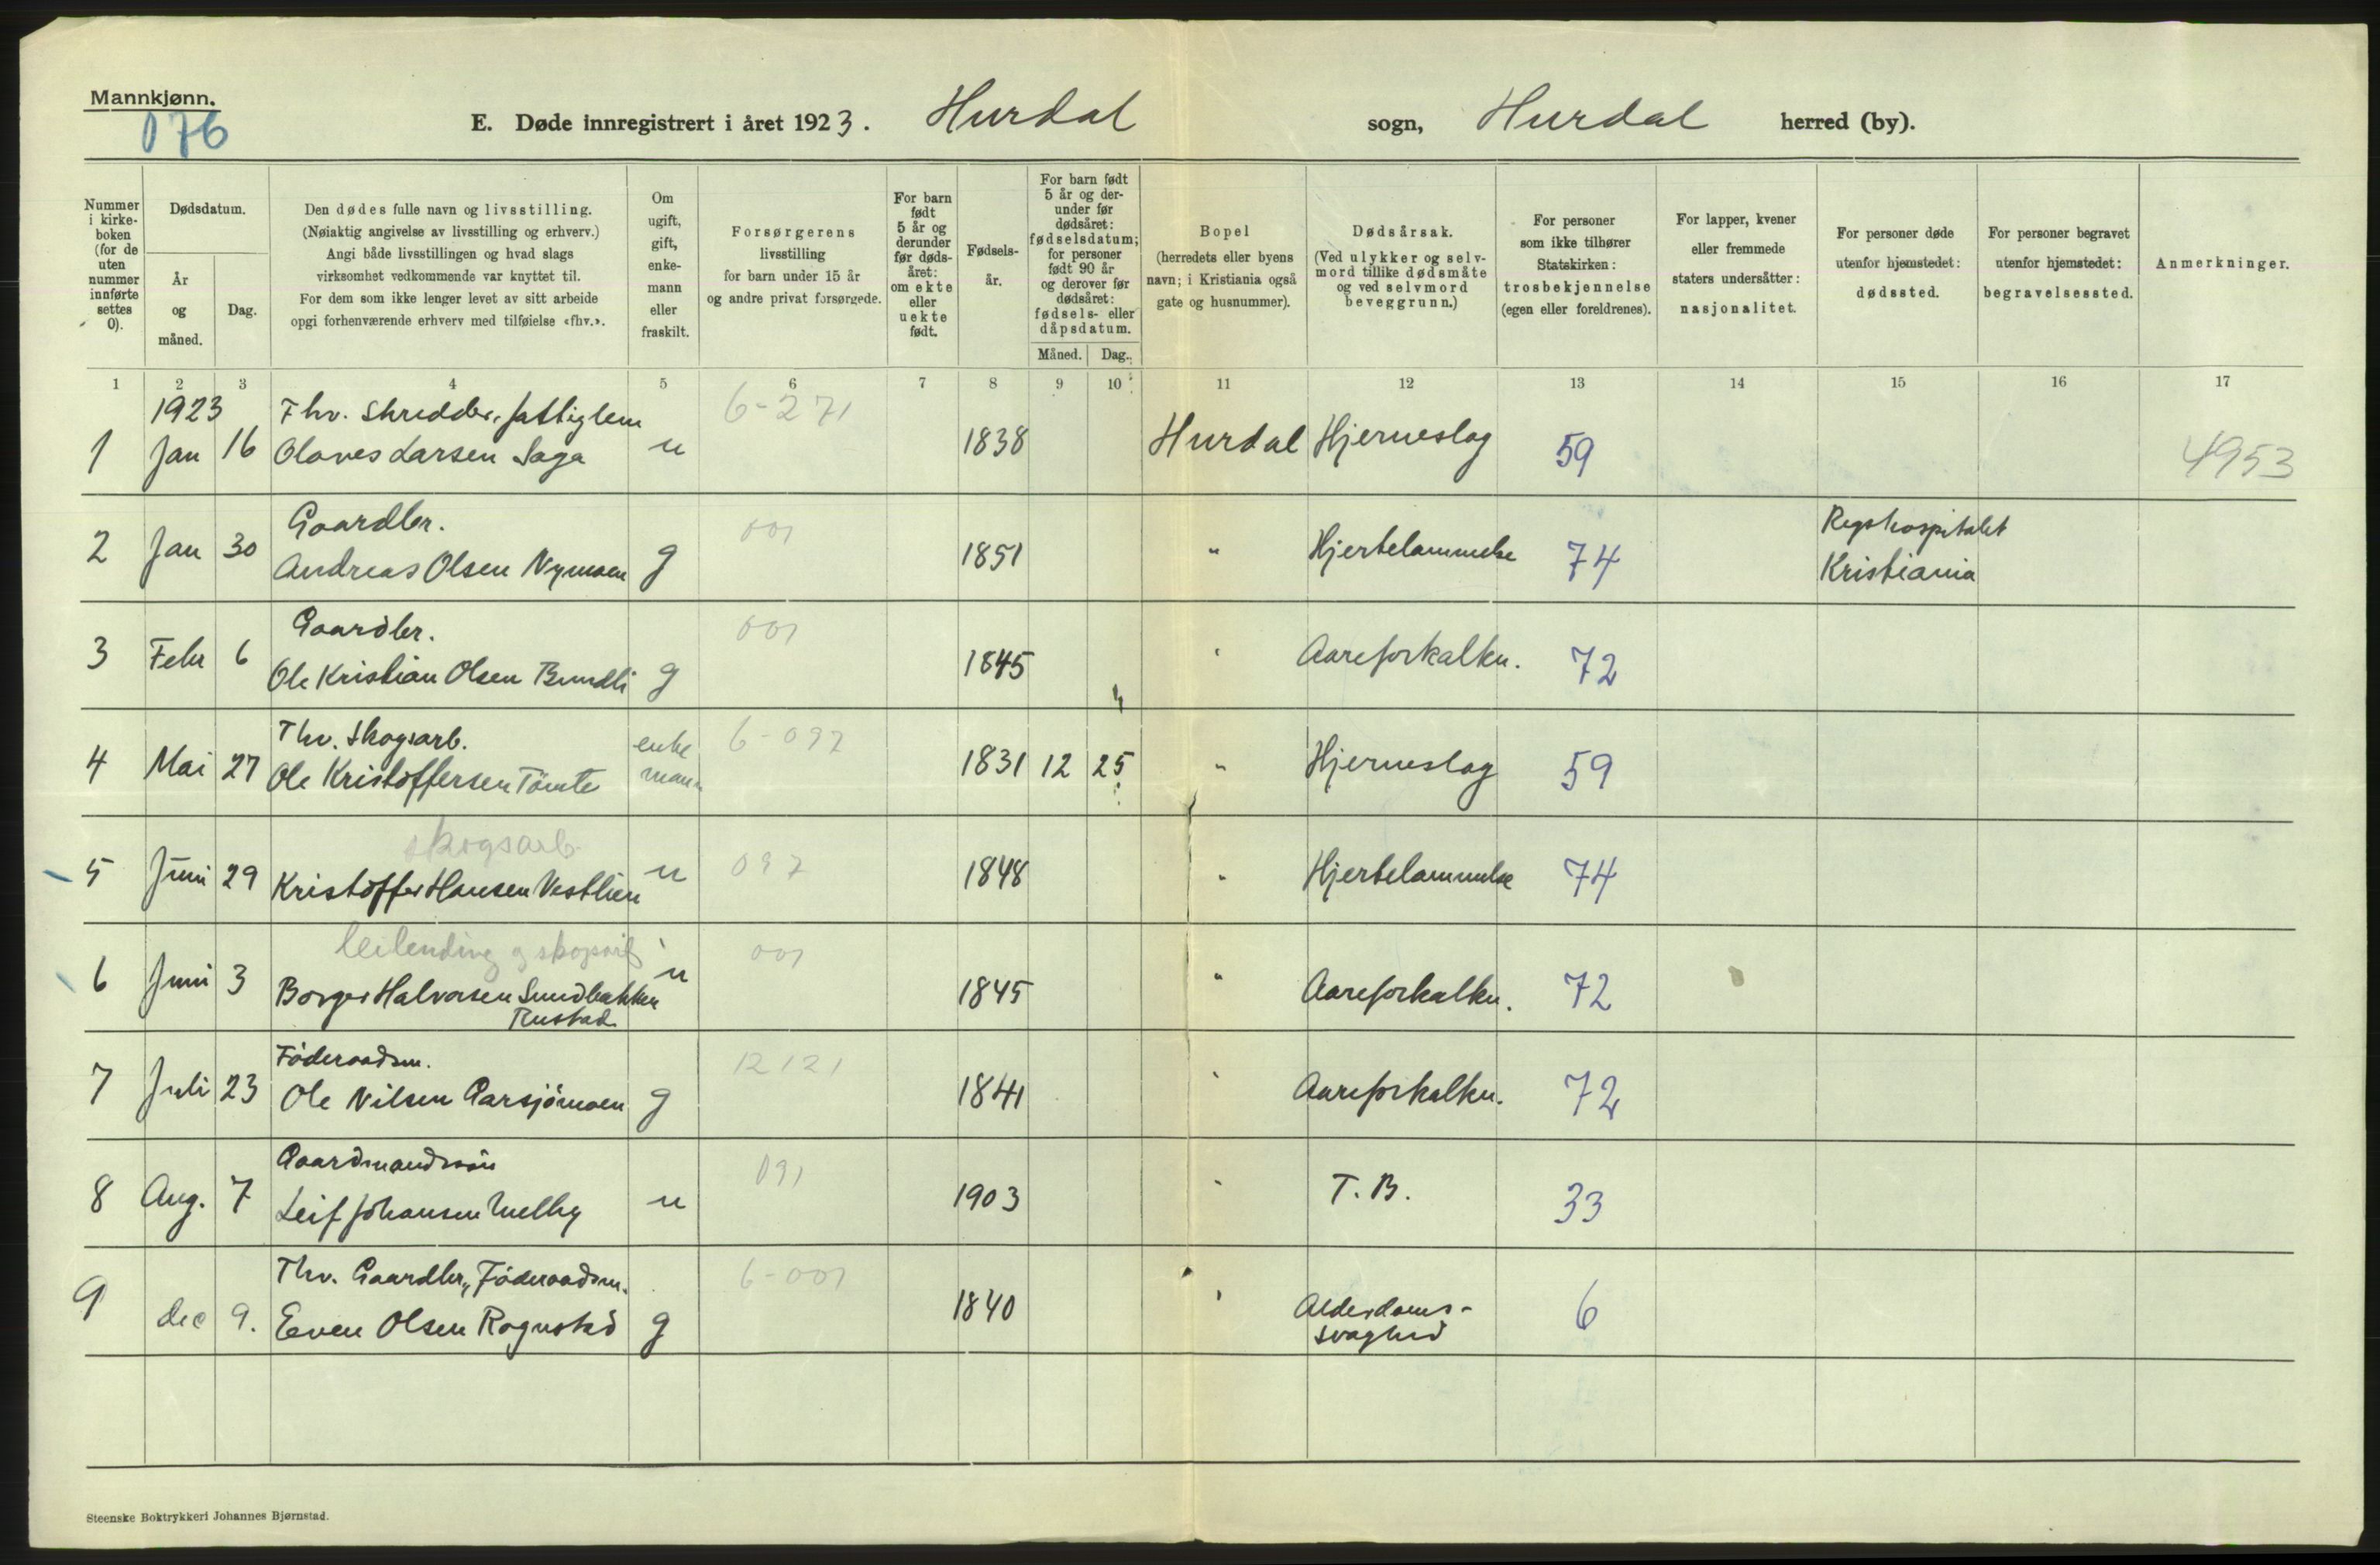 Mannkjønn.
076
E. Døde innregistrert i året 1923. Hurdal sogn, Hurdal herred (by).
Nummer i kirke-boken (for de uten nummer innførte settes 0).
Dødsdatum.
År og måned.
Dag.
Den dødes fulle navn og livsstilling.
(Nøiaktig angivelse av livsstilling og erhverv.)
Angi både livsstillingen og hvad slags
virksomhet vedkommende var knyttet til.
For dem som ikke lenger levet av sitt arbeide
opgi forhenværende erhverv med tilføielse «fhv.».
Om ugift, gift, enke-mann eller fraskilt.
Forsørgerens
livsstilling
for barn under 15 år
og andre privat forsørgede.
For barn født 5 år og derunder før døds-året: om ekte eller uekte født.
Fødsels-år.
For barn født 5 år og der-under før dødsåret: fødselsdatum; for personer født 90 år og derover før dødsåret: fødsels- eller dåpsdatum.
Måned. Dag.
Bopel
(herredets eller byens
navn; i Kristiania også
gate og husnummer).
Dødsårsak.
(Ved ulykker og selv-
mord tillike dødsmåte
og ved selvmord
beveggrunn.)
For personer
som ikke tilhører
Statskirken:
trosbekjennelse
(egen eller foreldrenes).
For lapper, kvener
eller fremmede
staters undersåtter:
nasjonalitet.
For personer døde
utenfor hjemstedet:
dødssted.
For personer begravet
utenfor hjemstedet:
begravelsessted.
Anmerkninger.
1 2 3 4 5 6 7 8 9 10 11 12 13 14 15 16 17
1923 Fhv. Skredder, fattiglem 6-271
1 Jan 16 Olaves Larsen Saga u 1838 Hurdal Hjerneslag 59 4953
Gaardbr. 001 Rigshospitalet
2 Jan 30 Andreas Olsen Nymoen g 1851 " Hjertelammelse 74 Kristiania
Gaardbr. 001
3 Febr 6 Ole Kristian Olsen Bundli g 1845 " Aareforkalkn. 72
Fhv. Skogsarb. enke 6-097
4 Mai 27 Ole Kristoffersen Tömte mann 1831 12 25 " Hjerneslag 59
skogsarb.
5 Juni 29 Kristoffer Hansen Vestlien u 097 1848 " Hjertelammelse 74
leilending og skogsarb 001
6 Juni 3 Borger Halvorsen Sundbakken u 1845 " Aareforkalkn. 72
Rustad
Föderaadsm. 12121
7 Juli 23 Ole Nilsen Garsjömoen g 1841 " Aareforkalkn. 72
Gaardmandssön 091
8 Aug. 7 Leif Johansen Melby u 1903 " T.B. 33
Fhv. Gaardbr., Föderaadsm. 6-001
9 dec 9. Even Olsen Rognstad g 1840 " Alderdoms-
svaghed 6
Steenske Boktrykkeri Johannes Bjørnstad.